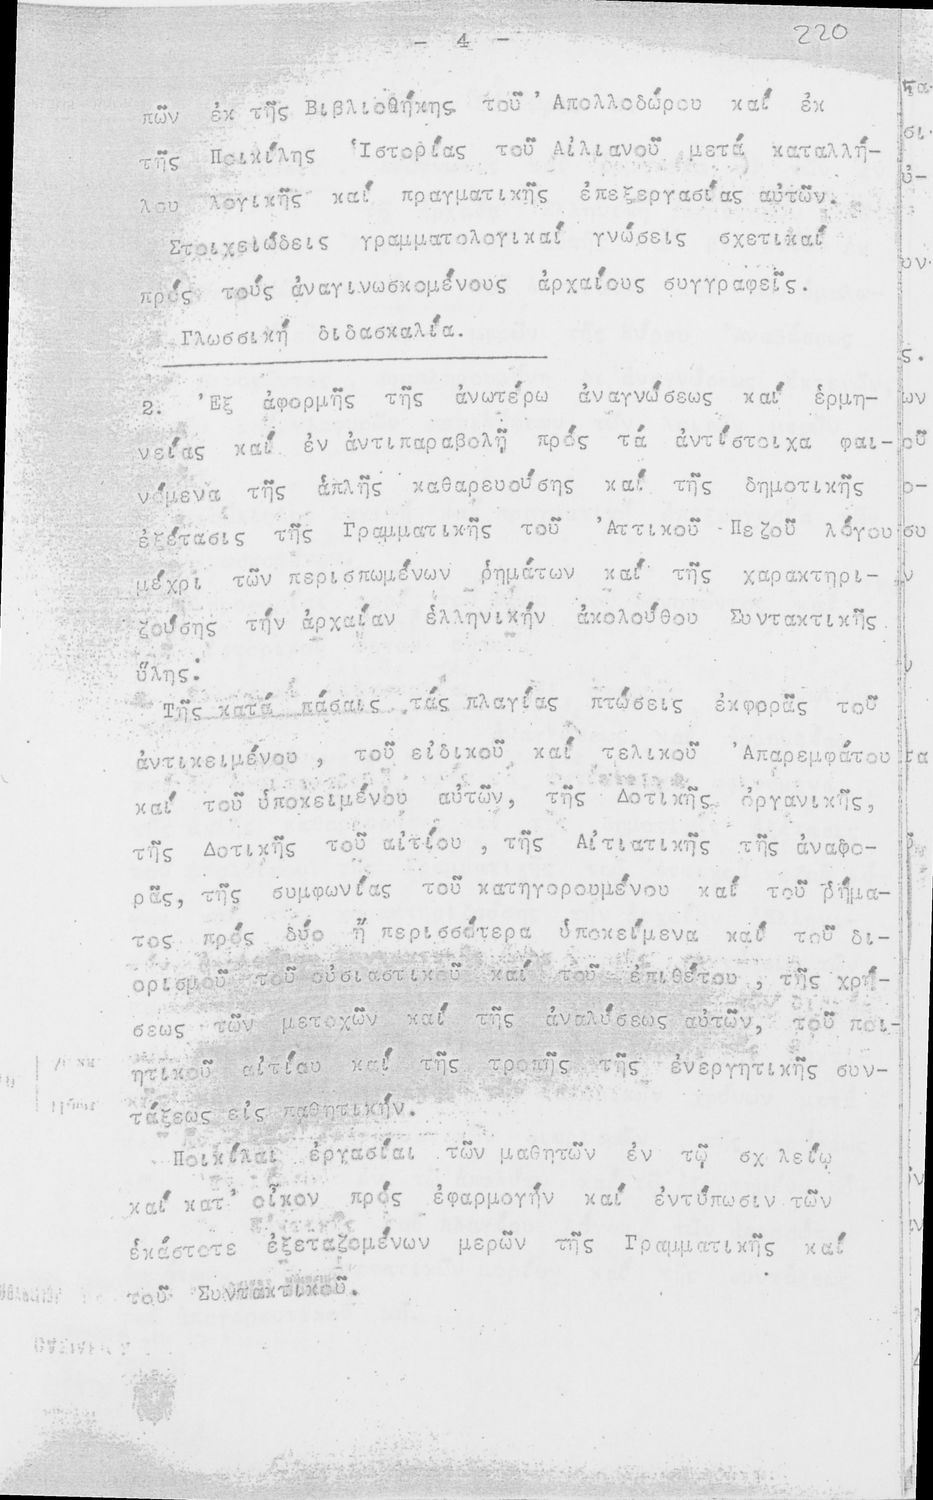 - 4 -
220
πῶν ἐκ τῆς Βιβλιοθήκης τοῦ 'Απολλοδώρου καί ἐκ
τῆς Ποικίλης Ἱστορίας τοῦ Αἰλιανοῦ μετά καταλλή-
λου λογικῆς καί πραγματικῆς ἐπεξεργασίας αὐτῶν.
Στοιχειώδεις γραμματολογικαί γνώσεις σχετικαί
πρός τούς ἀναγινωσκομένους ἀρχαίους συγγραφεῖς.
Γλωσσική διδασκαλία.
2. 'Εξ ἀφορμῆς τῆς ἀνωτέρω ἀναγνώσεως καί ἑρμη-
νείας καί ἐν ἀντιπαραβολῇ πρός τά ἀντίστοιχα φαι-
νόμενα τῆς ἁπλῆς καθαρευούσης καί τῆς δημοτικῆς
ἐξέτασις τῆς Γραμματικῆς τοῦ 'Αττικοῦ Πεζοῦ λόγου
μέχρι τῶν περισπωμένων ῥημάτων καί τῆς χαρακτηρι-
ζούσης τήν ἀρχαίαν ἑλληνικήν ἀκολούθου Συντακτικῆς
ὕλης:
Τῆς κατά πάσαις τάς πλαγίας πτώσεις ἐκφορᾶς τοῦ
ἀντικειμένου, τοῦ εἰδικοῦ καί τελικοῦ 'Απαρεμφάτου
καί τοῦ ὑποκειμένου αὐτῶν, τῆς Δοτικῆς ὀργανικῆς,
τῆς Δοτικῆς τοῦ αἰτίου, τῆς Αἰτιατικῆς τῆς ἀναφο-
ρᾶς, τῆς συμφωνίας τοῦ κατηγορουμένου καί τοῦ ῥήμα-
τος πρός δύο ἤ περισσότερα ὑποκείμενα καί τοῦ δι-
ορισμοῦ τοῦ οὐσιαστικοῦ καί τοῦ ἐπιθέτου, τῆς χρή-
σεως τῶν μετοχῶν καί τῆς ἀναλύσεως αὐτῶν, τοῦ ποι-
ητικοῦ αἰτίου καί τῆς τροπῆς τῆς ἐνεργητικῆς συν-
τάξεως εἰς παθητικήν.
Ποικίλαι ἐργασίαι τῶν μαθητῶν ἐν τῷ σχ λείῳ
καί κατ' οἶκον πρός ἐφαρμογήν καί ἐντύπωσιν τῶν
ἑκάστοτε ἐξεταζομένων μερῶν τῆς Γραμματικῆς καί
τοῦ Συντακτικοῦ.